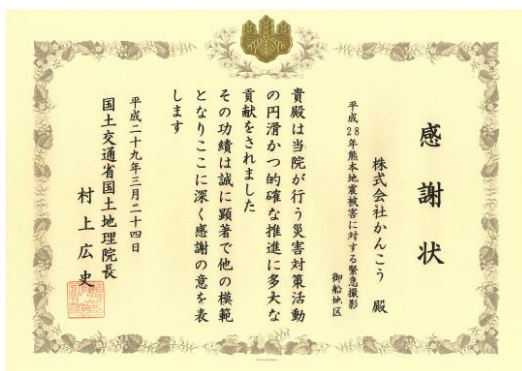 感謝状
株式会社かんこう 殿
平成28年熊本地震被害に対する緊急撮影
御船地区
貴殿は当院が行う災害対策活動
の円滑かつ的確な推進に多大な
貢献をされました
その功績は誠に顕著で他の模範
となりここに深く感謝の意を表
します
平成二十九年三月二十四日
国土交通省国土地理院長
村上広史